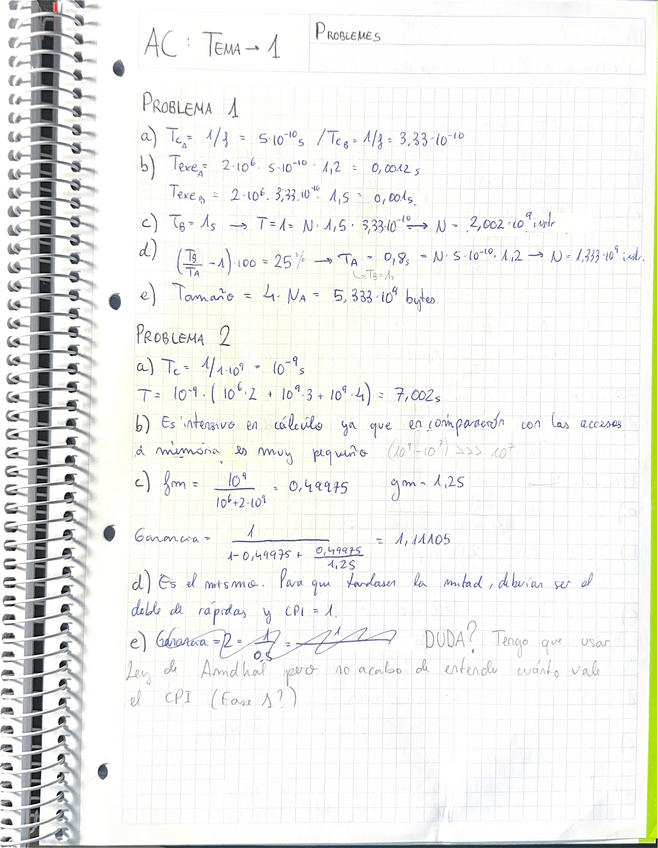 AC: TEMA → 1
PROBLEMES
PROBLEMA 1
a) Tc_A = 1/f = 5·10^-10 s / Tc_B = 1/f = 3,33·10^-10
b) Texe_A = 2·10^6 · 5·10^-10 · 1,2 = 0,0012 s
Texe_B = 2·10^6 · 3,33·10^-10 · 1,5 = 0,001 s.
c) T_B = 1s → T = 1 = N · 1,5 · 3,33·10^-10 → N = 2,002·10^9 instr.
d) (T_B/T_A - 1)·100 = 25% → T_A = 0,8s = N · 5·10^-10 · 1,2 → N = 1,333·10^9 inst.
↳ T_B = 1s
e) Tamaño = 4 · N_A = 5,333·10^9 bytes
PROBLEMA 2
a) Tc = 1/1·10^9 = 10^-9 s
T = 10^-9 · (10^6·2 + 10^9·3 + 10^9·4) = 7,002s
b) Es intensivo en cálculo ya que en comparación con las accesos
a memoria es muy pequeño (10^9 - 10^9) >>> 10^7
c) fm = 10^9 / (10^6+2·10^9) = 0,49975 gm = 1,25
Ganancia = 1 / (1-0,49975 + 0,49975/1,25) = 1,11105
d) Es el mismo. Para que tardasen la mitad, deberían ser el
doble de rápidas y CPI = 1.
e) Ganancia = 2 = 1/0,5 = 1 DUDA? Tengo que usar
Ley de Amdhal pero no acabo de entende cuánto vale
el CPI (Fase 1?)